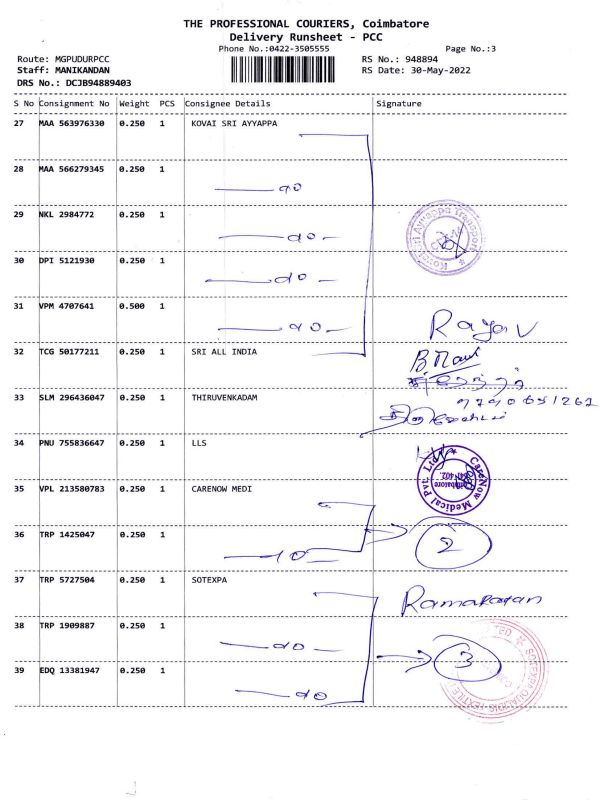 THE PROFESSIONAL COURIERS, Coimbatore
Delivery Runsheet - PCC
Phone No.:0422-3505555
Page No.:3
Route: MGPUDURPCC
RS No.: 948894
Staff: MANIKANDAN
RS Date: 30-May-2022
DRS No.: DCJB94889403
S No Consignment No Weight PCS Consignee Details Signature
27 MAA 563976330 0.250 1 KOVAI SRI AYYAPPA
28 MAA 566279345 0.250 1 do
29 NKL 2984772 0.250 1 do
30 DPI 5121930 0.250 1 do
31 VPM 4707641 0.500 1 do
Ragav
32 TCG 50177211 0.250 1 SRI ALL INDIA
33 SLM 296436047 0.250 1 THIRUVENKADAM
34 PNU 755836647 0.250 1 LLS
35 VPL 213580783 0.250 1 CARENOW MEDI
CareNow Medical Pvt. Ltd.
36 TRP 1425047 0.250 1 do 2
37 TRP 5727504 0.250 1 SOTEXPA
38 TRP 1909887 0.250 1 do 3
39 EDQ 13381947 0.250 1 do